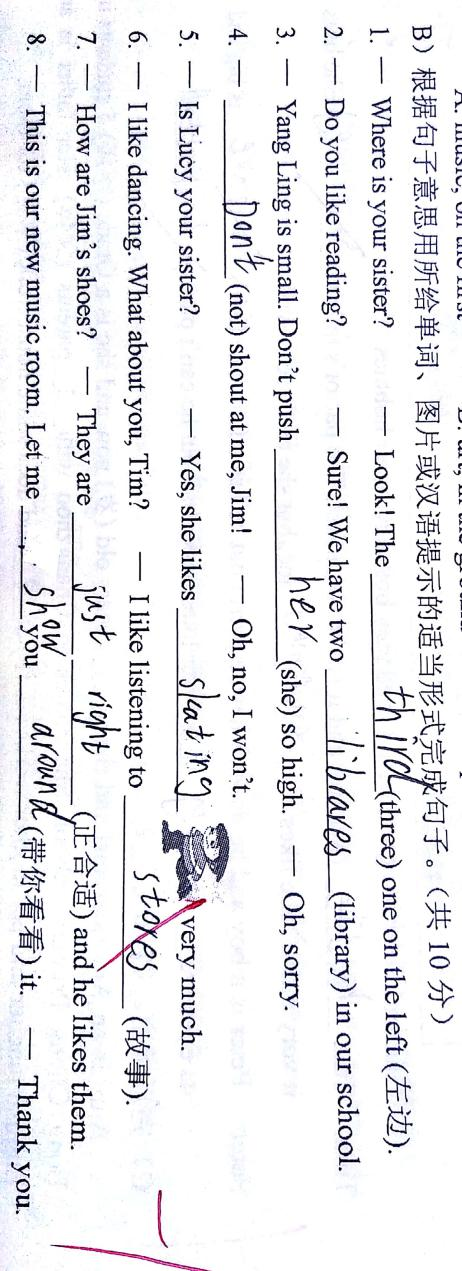 B) 根据句子意思用所给单词、图片或汉语提示的适当形式完成句子。(共 10 分)
1. — Where is your sister? — Look! The third (three) one on the left (左边).
2. — Do you like reading? — Sure! We have two librares (library) in our school.
3. — Yang Ling is small. Don't push her (she) so high. — Oh, sorry.
4. — Don't (not) shout at me, Jim! — Oh, no, I won't.
5. — Is Lucy your sister? — Yes, she likes skating very much.
6. — I like dancing. What about you, Tim? — I like listening to stores (故事).
7. — How are Jim's shoes? — They are just right (正合适) and he likes them.
8. — This is our new music room. Let me show you around (带你看看) it. — Thank you.